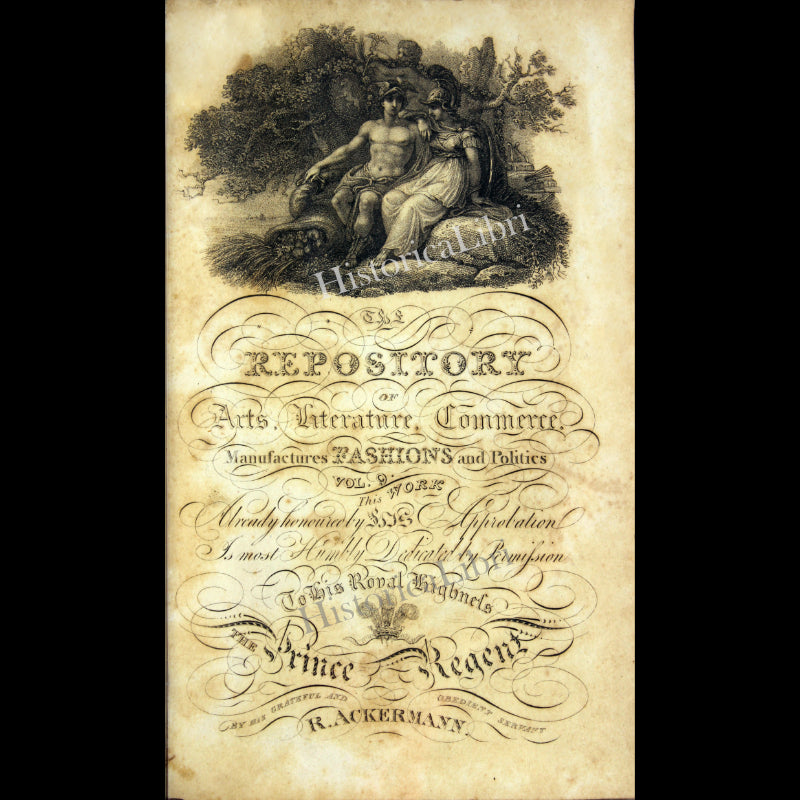 HistoricaLibri
THE
REPOSITORY
OF
Arts, Literature, Commerce,
Manufactures FASHIONS and Politics
VOL. 9.
This WORK
Already honoured by HIS Approbation
Is most Humbly Dedicated by Permiſsion
HistoricaLibri
To His Royal Highneſs
THE Prince Regent
BY HIS GRATEFUL AND OBEDIENT SERVANT
R. ACKERMANN.